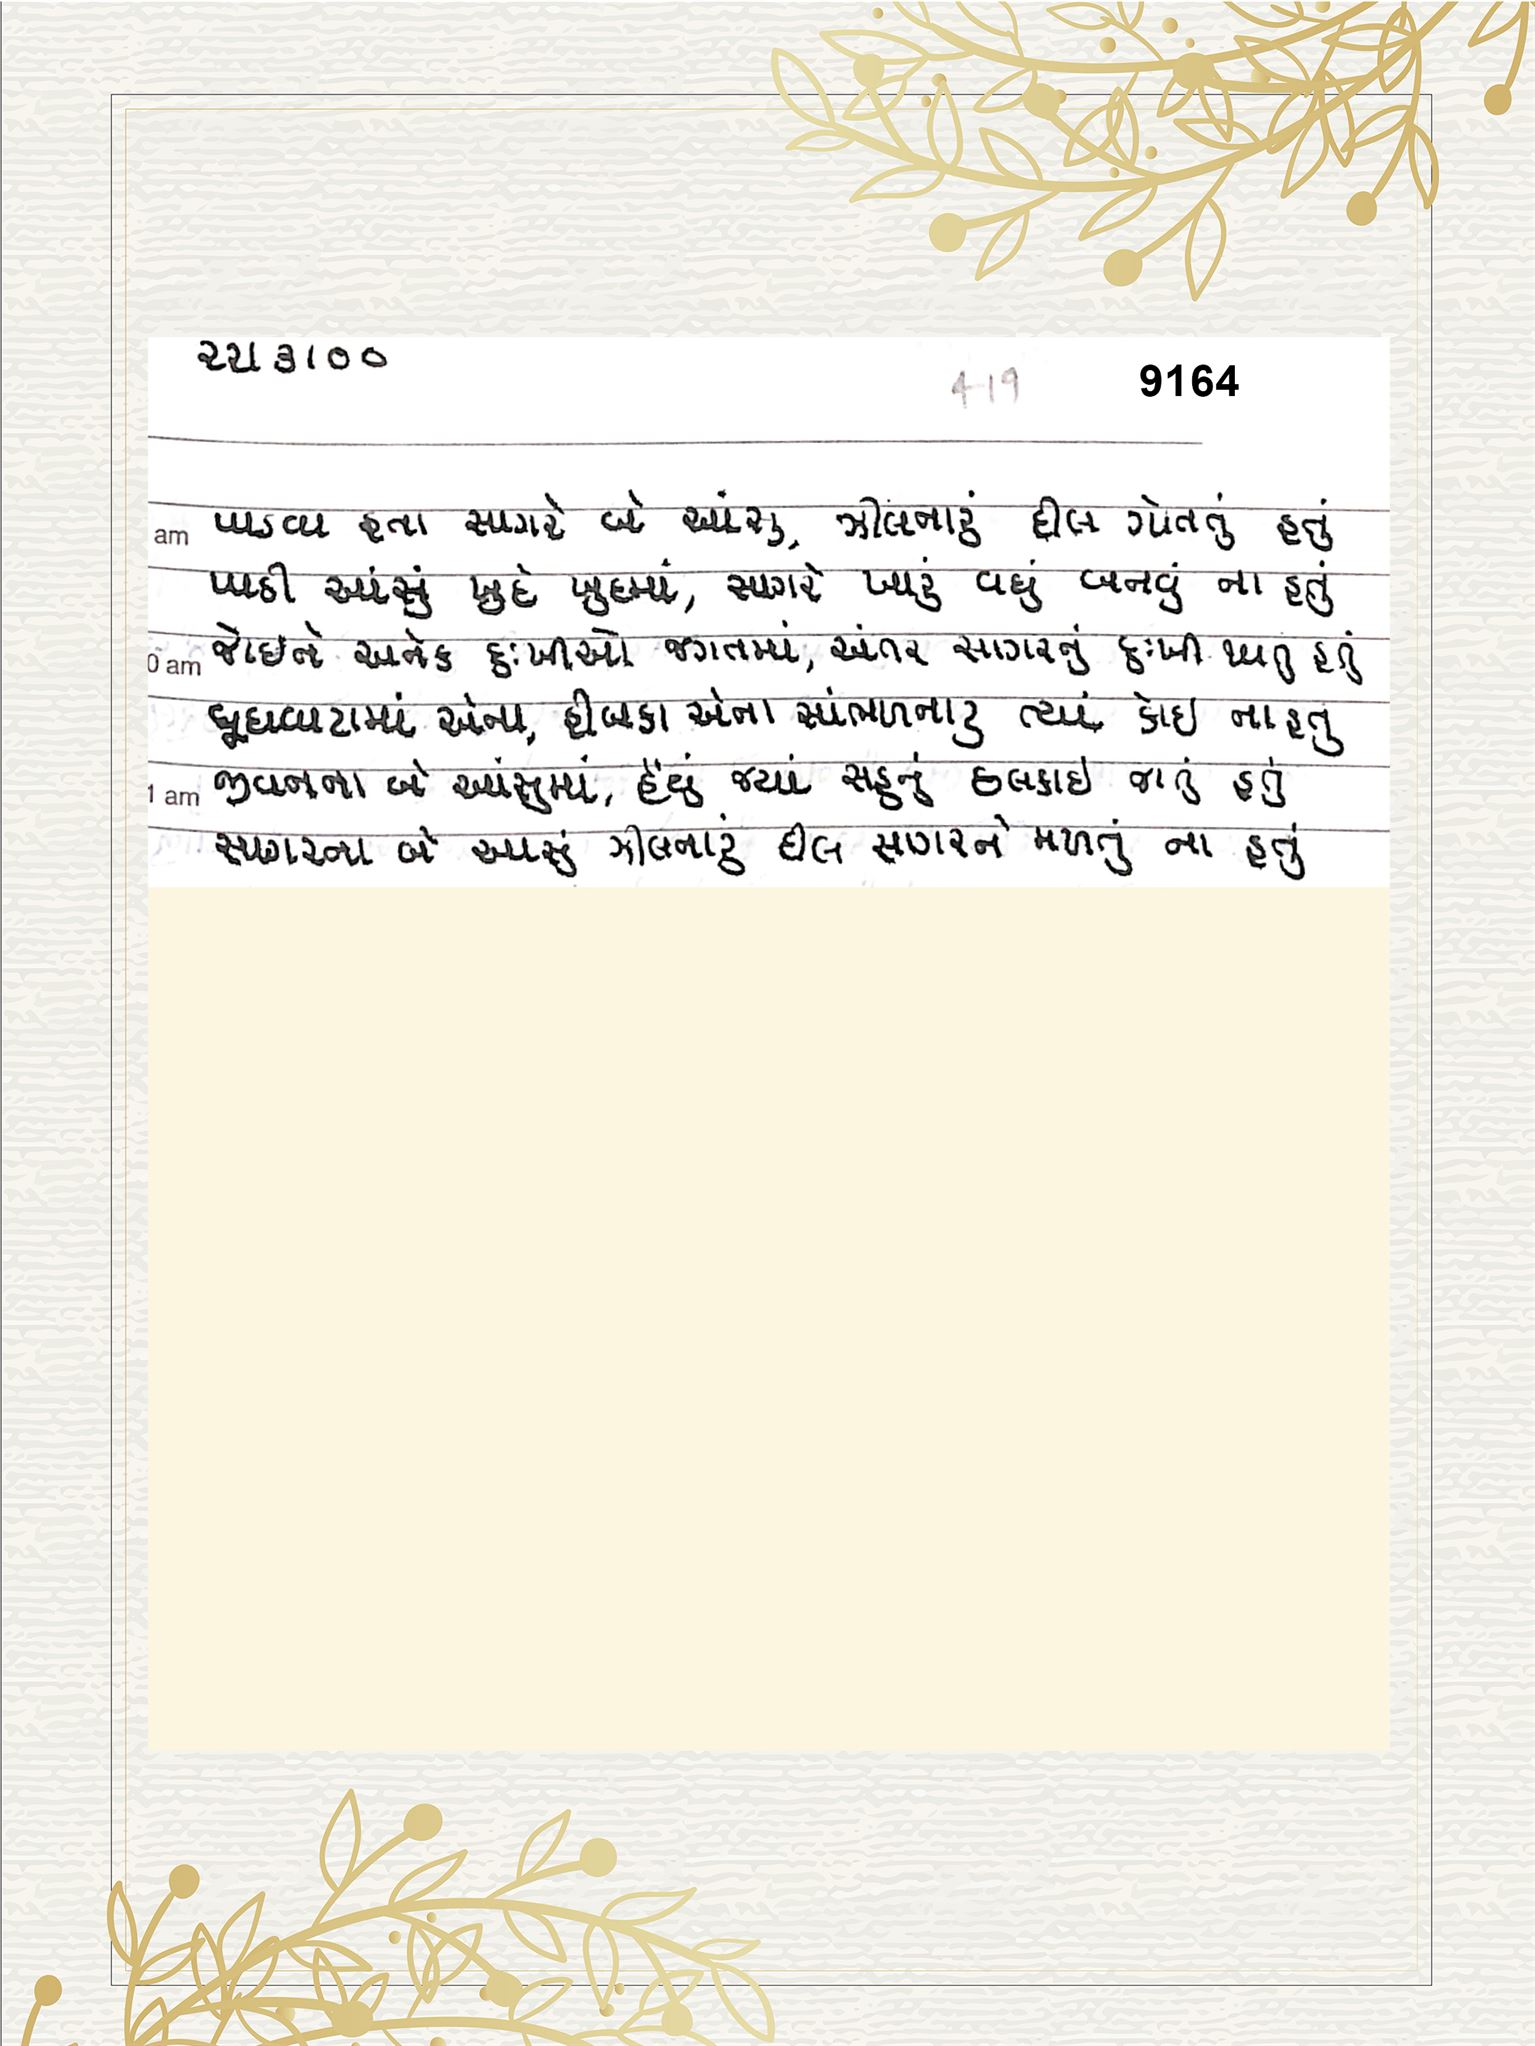 ૨૨।૩।૦૦
4-19
9164
am પાડવા હતા સાગરે બે આંસુ, ઝીલનારું દીલ ગોતતું હતું
પાઠી આંસું ખુદે ખુદમાં, સાગરે ખારું વધું બનવું ના હતું
0 am જોઇને અનેક દુઃખીઓ જગતમાં, અંતર સાગરનું દુઃખી થાતુ હતું
ઘૂઘવાટામાં એના, હીબકા એના સાંભળનારુ ત્યાં કોઇ ના હતુ
1 am જીવનના બે આંસુમાં, હૈયું જ્યાં સહુનું છલકાઇ જાતું હતું
સાગરના બે આસું ઝીલનારું દીલ સાગરને મળતું ના હતું